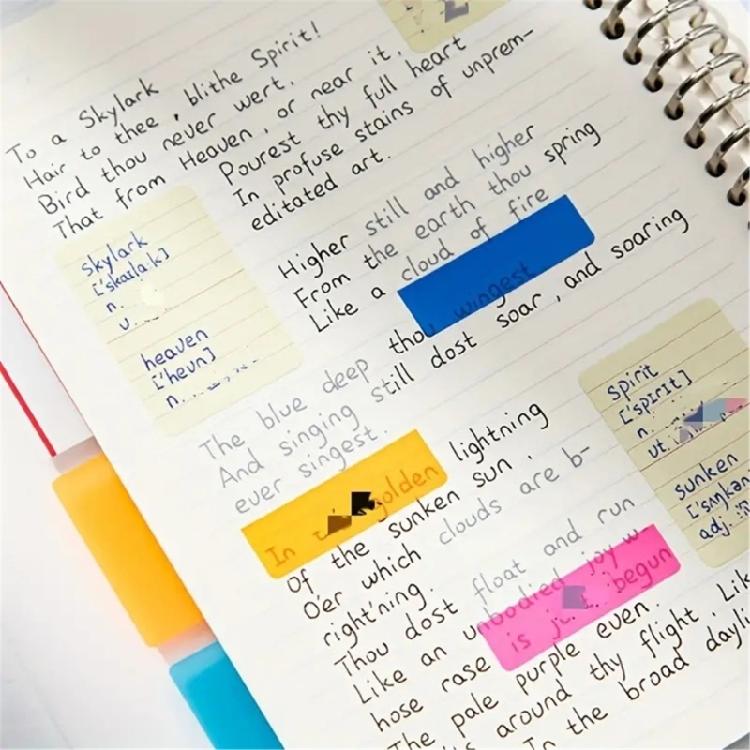 To a Skylark
Hair to thee, blithe Spirit!
Bird thou never wert.
That from Heaven, or near it.
Pourest thy full heart
In profuse stains of unprem-
editated art.
skylark
['skaila:k]
n.
v.
heaven
['hevn]
n.
Higher still and higher
From the earth thou spring
Like a cloud of fire
The blue deep thou wingest
And singing still dost soar, and soaring
ever singest.
In golden lightning
Of the sunken sun.
O'er which clouds are b-
right'ning.
Thou dost float and run
Like an unbodied joy w
hose rase is begun
The pale purple even.
around thy flight. Lik
In the broad dayli
spirit
['spɪrɪt]
n.
vt.
sunken
['sʌŋkən
adj.